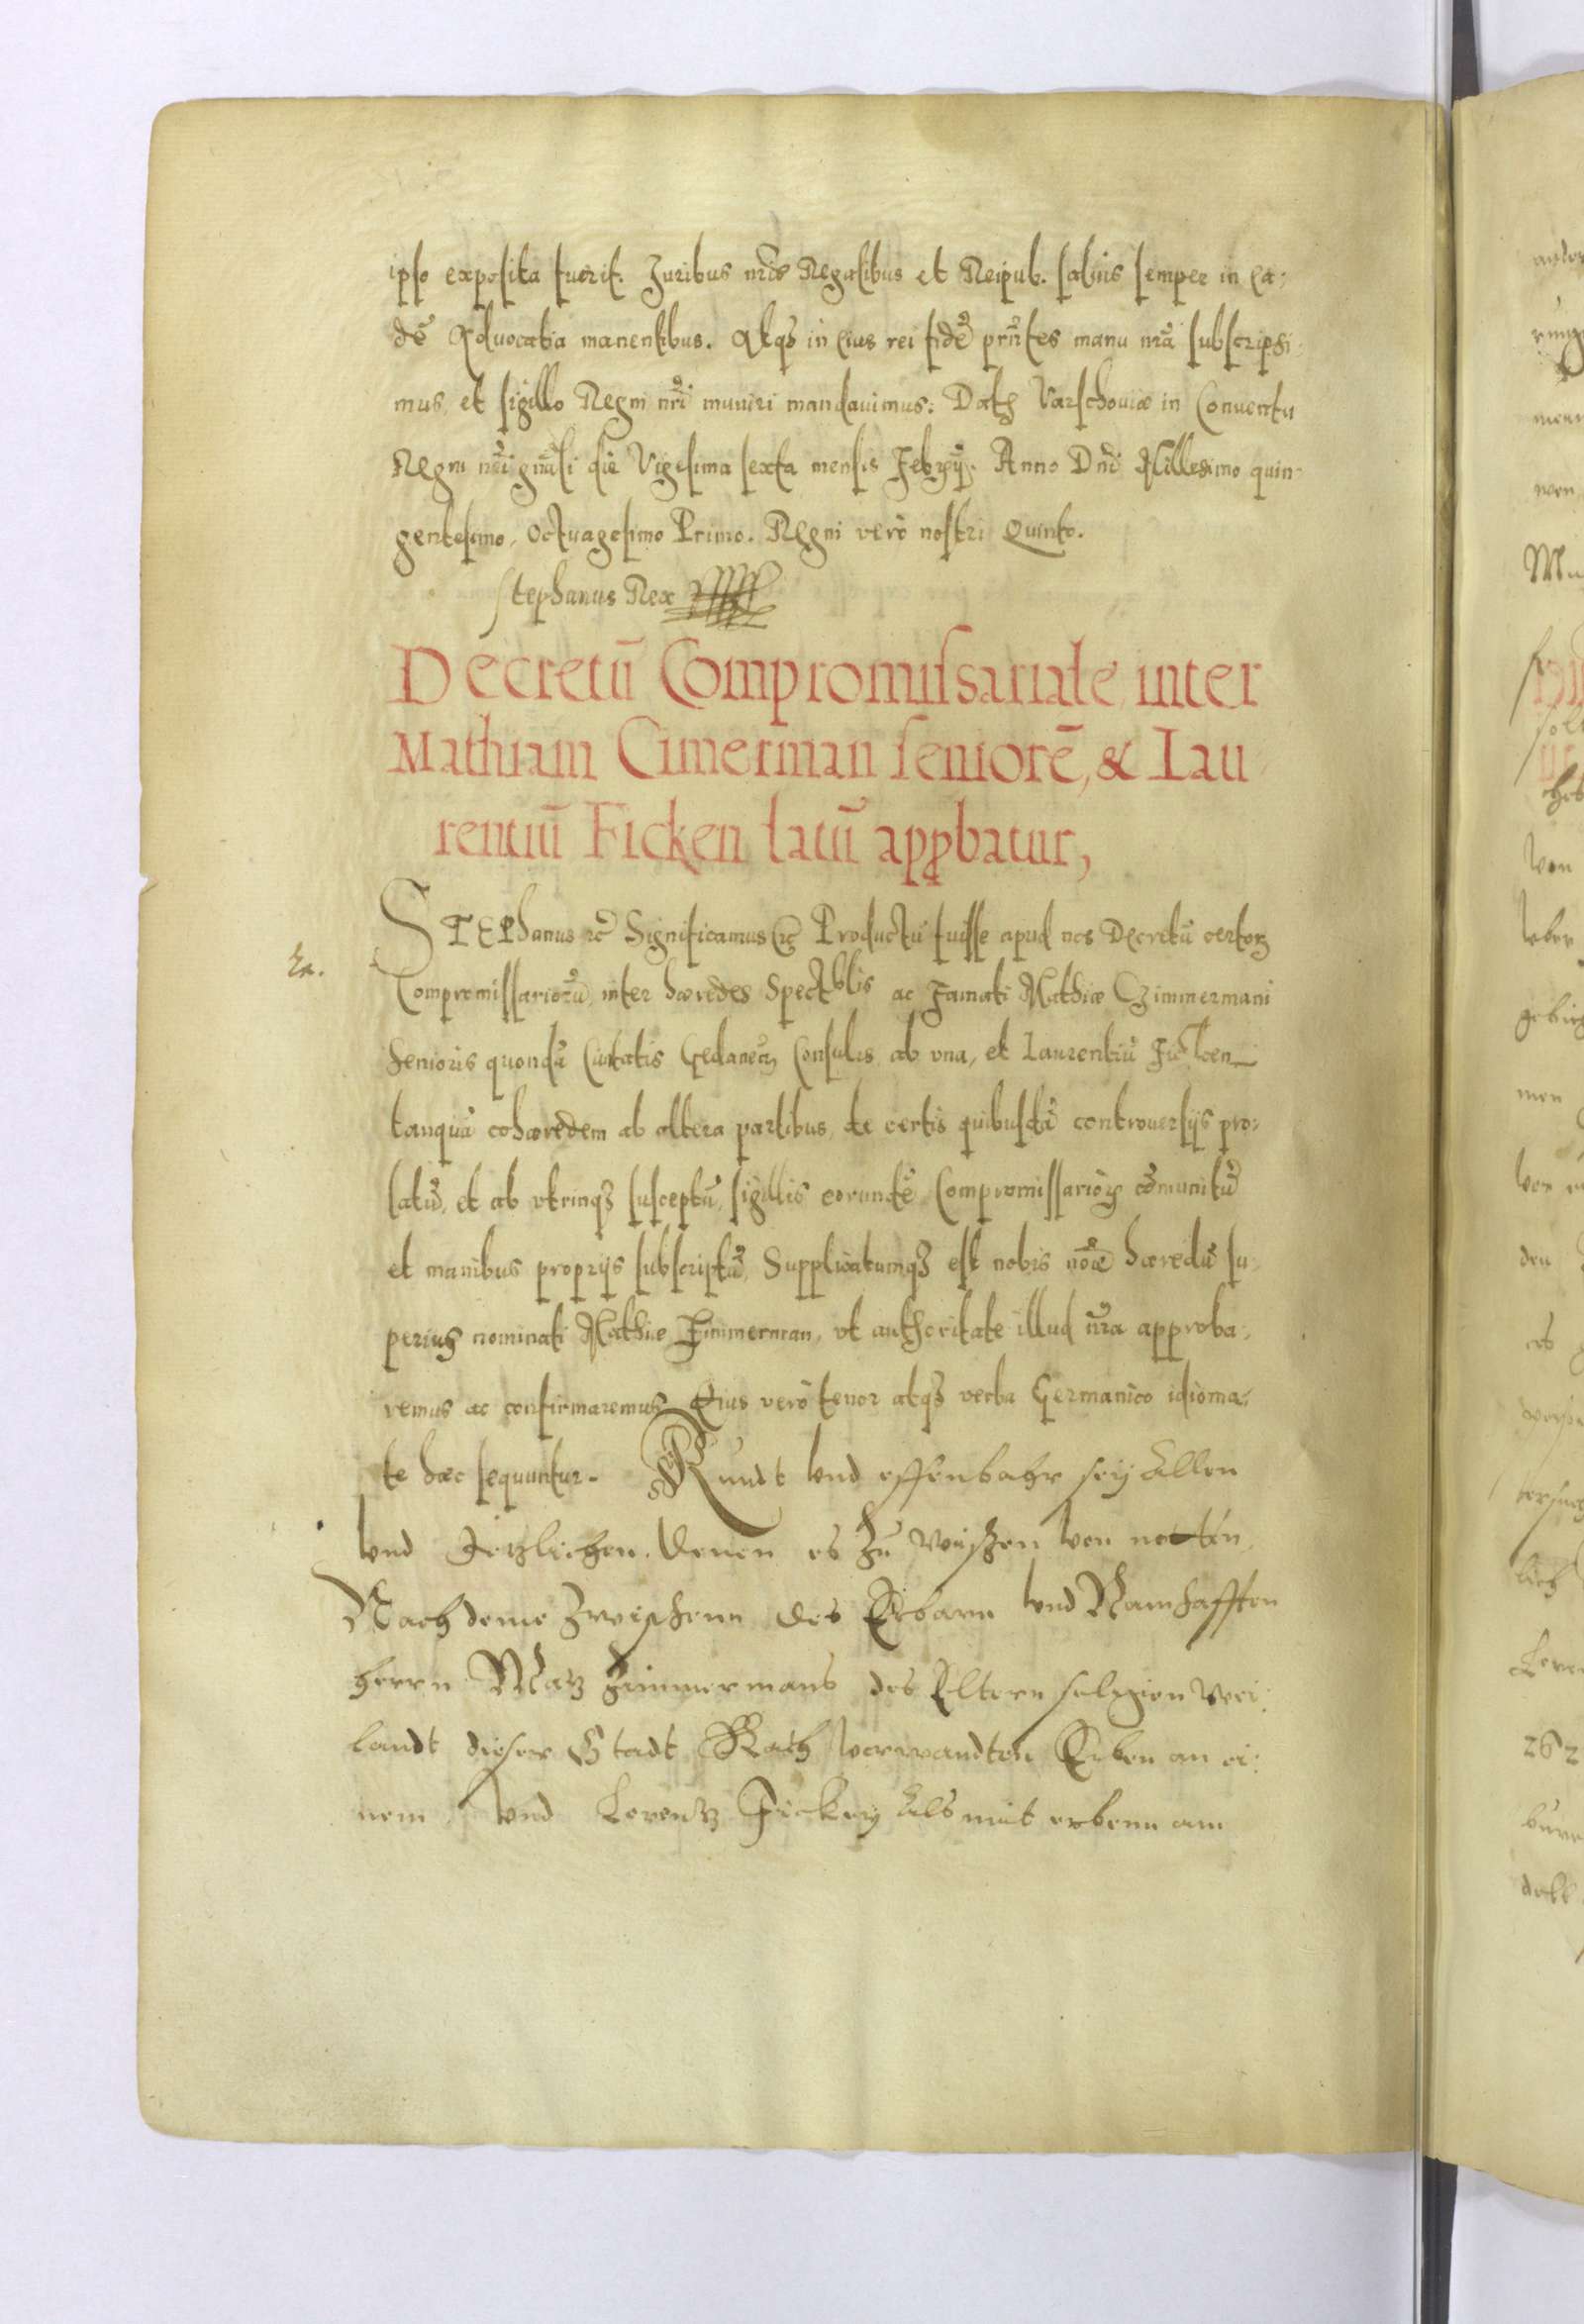 ipso exposita fuerit. Juribus nr̃is Regalibus et Reipub. salvis semper in ea-
dẽ Aduocatia manentibus. Atqꝫ in eius rei fidẽ prñtes manu nr̃a subscripsi-
mus, et sigillo Regni nr̃i muniri mandauimus. Datꝫ Varschouiæ in Conuentu
Regni nr̃i gñali die Vigesima sexta mensis Febryÿ. Anno Dñi Millesimo quin-
gentesimo, Octuagesimo Primo. Regni verò nostri Quinto.
Stephanus Rex
Decretũ Compromissariale, inter
Mathiam Cimerman seniorẽ, & Lau
rentiũ Ficken latũ appꝛobatur,
STEPhanus ꝛc̃ Significamus ꝛc̃ Productũ fuisse apud nos Decretũ certoꝝ
Compromissariorũ, inter hæredes Spectblis ac Famati Mathiæ Czimmermani
Senioris quondã Ciuitatis Gedaneñ Consulis ab vna, et Laurentiũ Ficken
tanquã cohæredem ab altera partibus, de certis quibusdã controuersijs pro-
latũ, et ab vtrinqꝫ susceptũ, sigillis eorundẽ Compromissarioꝝ cõmunitũ
et manibus proprijs subscriptũ, Supplicatumqꝫ est nobis noĩe hæredũ su-
perius nominati Mathiæ Zimmerman, vt authoritate illud nr̃a approba-
remus ac confirmaremus. Eius verò tenor atqꝫ verba Germanico idioma-
te hæc sequuntur. Kundt vnd offenbahr sey Allen
vnd Jetzlichen, denen es zu wissen von nöten,
Nachdeme Zwischenn des Erbarn vnd Namhafften
herrn Matz Zimmermans des Eltern seligen wei-
landt dieser Stadt Rath verwandten Erben an ei-
nem, vnd Lorentz Ficken Als mit erbenn am